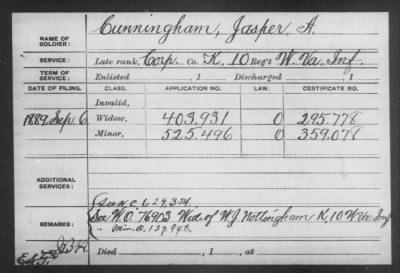 NAME OF SOLDIER: Cunningham, Jasper A.
SERVICE: Late rank, Corp. Co. K, 10 Reg't W. Va. Inf.
TERM OF SERVICE: Enlisted , 1 Discharged , 1
DATE OF FILING. CLASS. APPLICATION NO. LAW. CERTIFICATE NO.
Invalid,
1889, Sep. 6 Widow, 403.931 0 295.778
Minor, 525.496 0 359.078
ADDITIONAL SERVICES:
C 629.334.
REMARKS: See W.O. 76902 Wid. of W.J. Nottingham K, 10 W Va Inf
" Min. O. 137.948.
Died , 1 , at